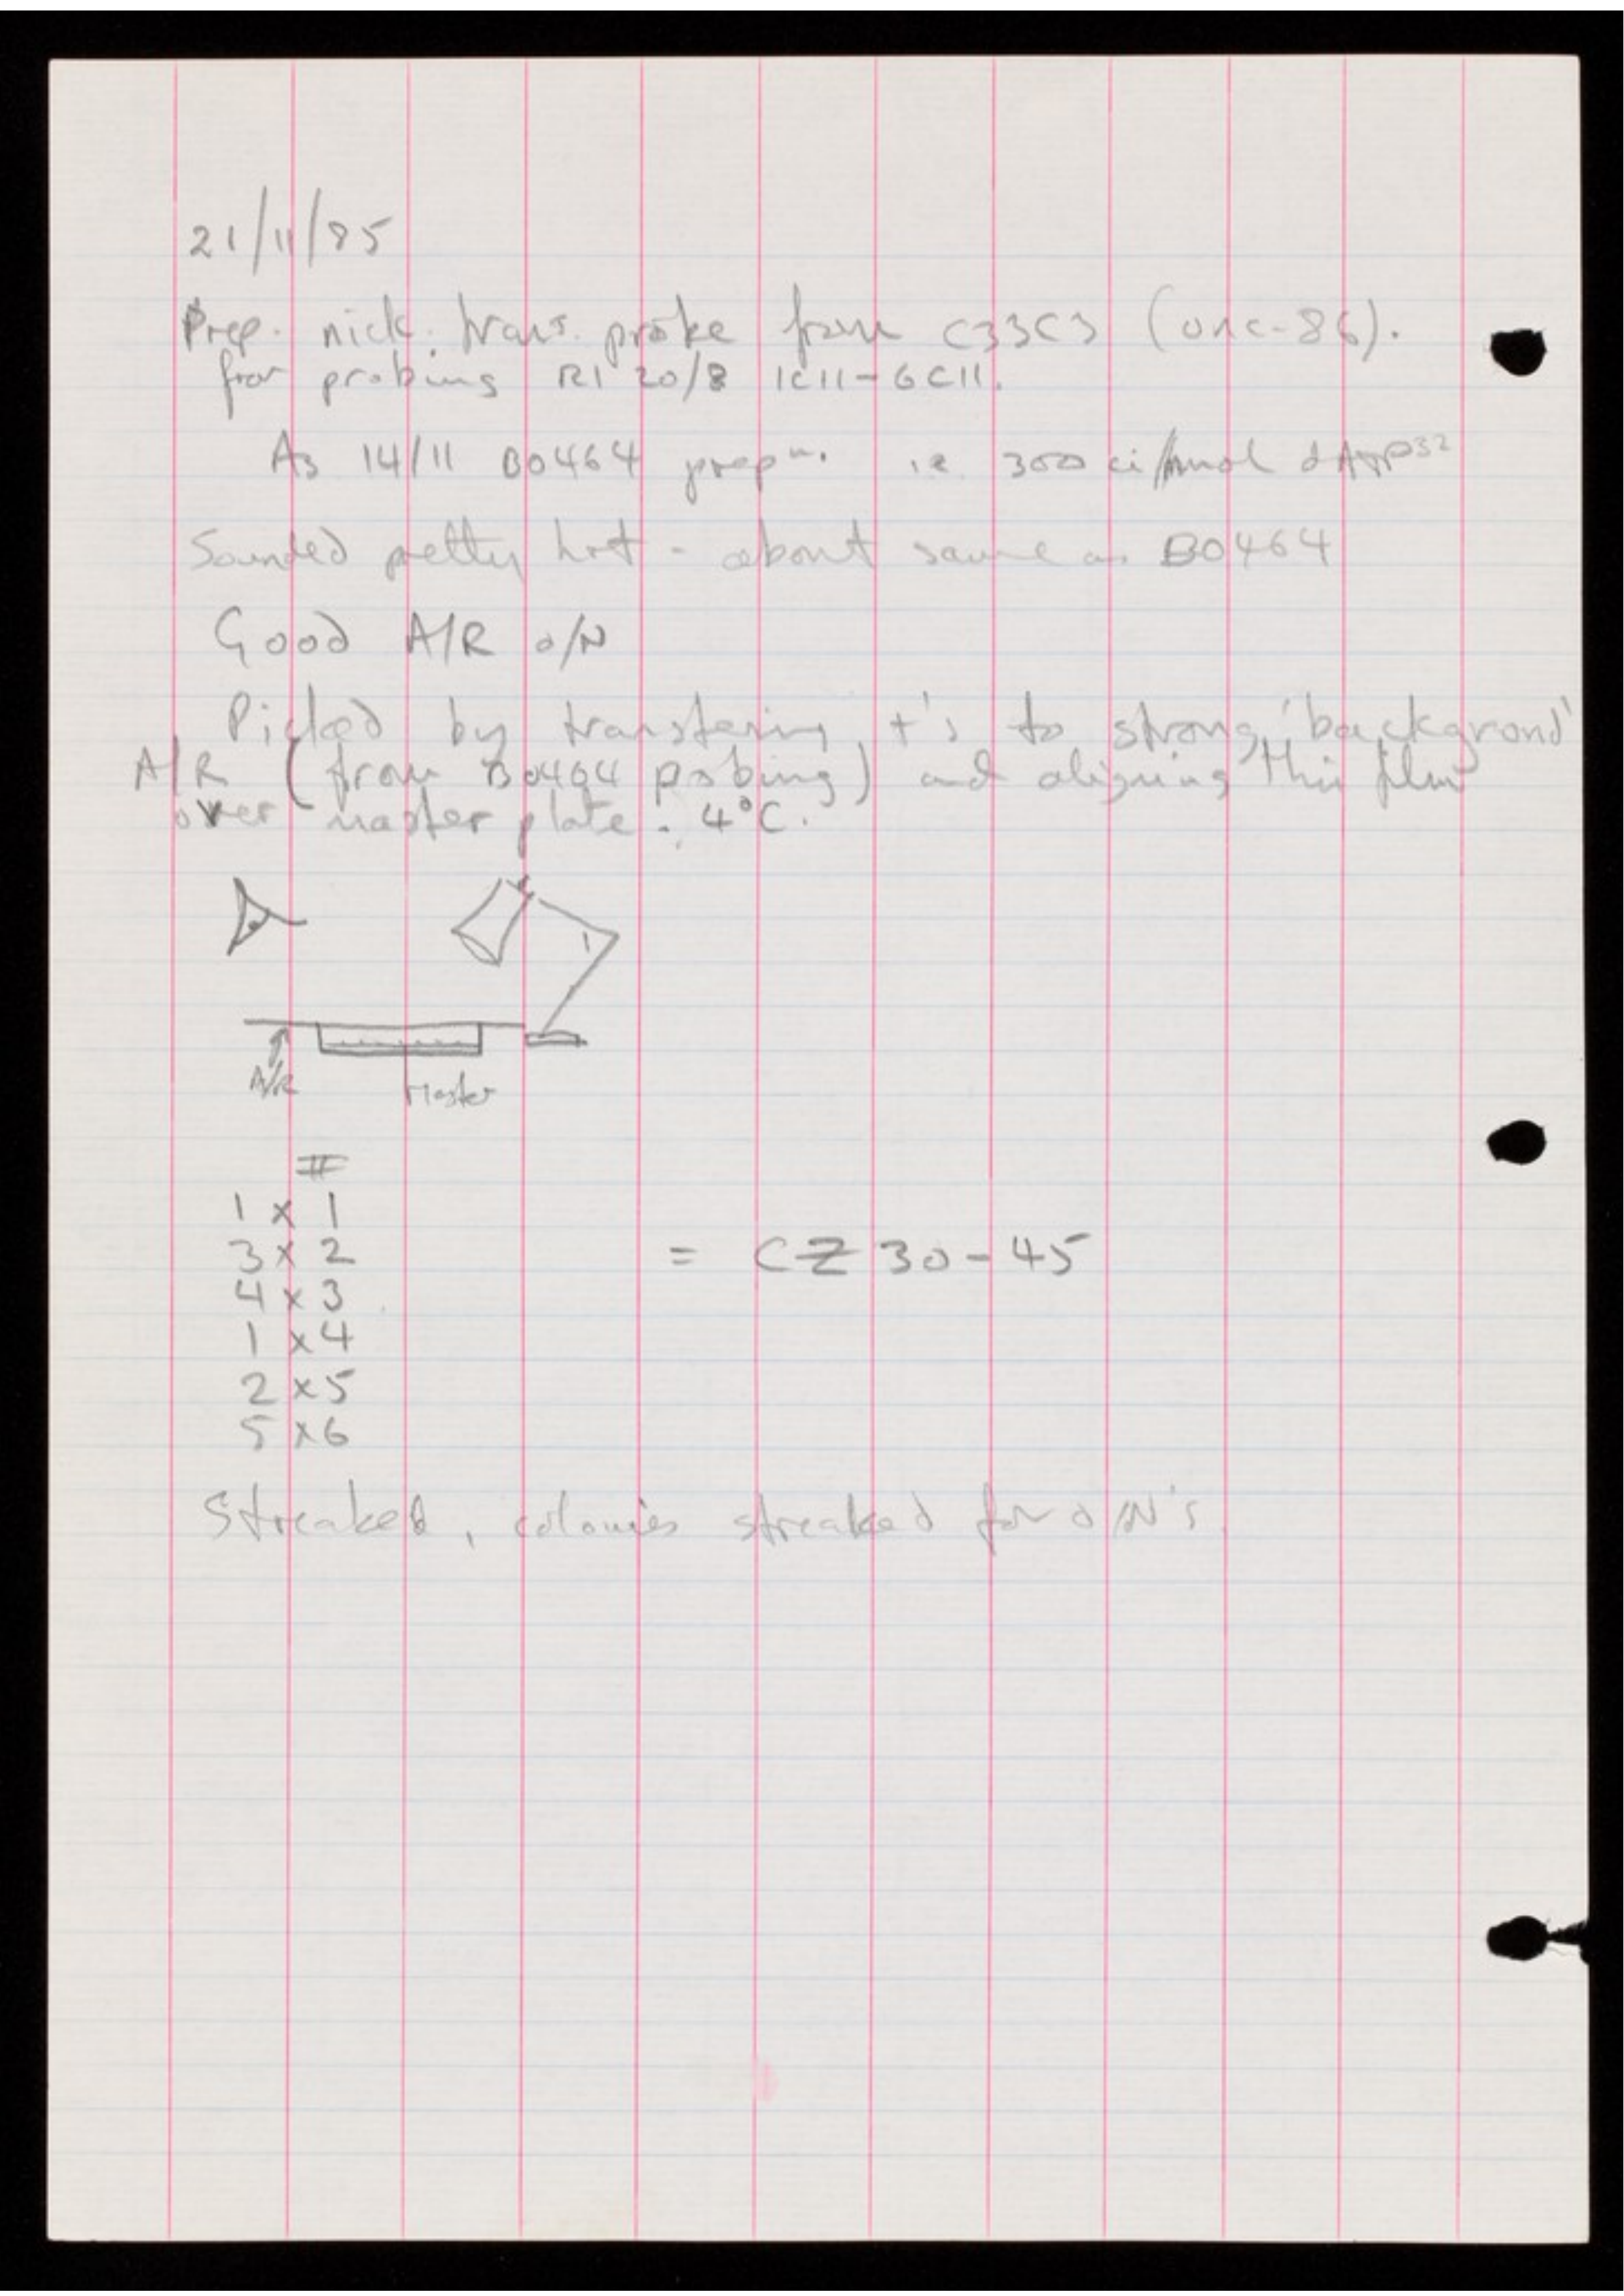 21/11/85
Prep. nick. trans. probe from C33C3 (unc-86).
for probing R1 20/8 1C11-6C11.
As 14/11 B0464 prepn. ie 300 ci/mmol dATP32
Sounded pretty hot - about same as B0464
Good A/R o/N
Picked by transfering +'s to strong 'backgrond'
A/R (from B0464 probing) and aligning this film
over master plate. 4°C.
A/R Master
#
1 x 1
3 x 2 = CZ 30-45
4 x 3
1 x 4
2 x 5
5 x 6
Streaked, colonies streaked for o/N's.